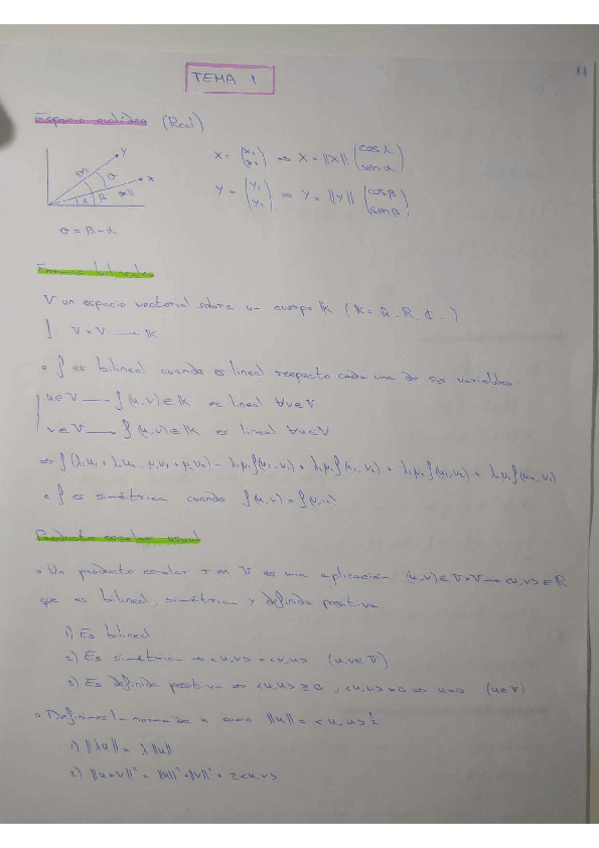 TEMA 1
Espacio euclídeo (Real)
y
x
θ
α β
θ = β - α
X = (x₁ x₂) ⇒ X = ||X|| (cos α sen α)
Y = (y₁ y₂) ⇒ Y = ||Y|| (cos β sen β)
Formas bilineales
V un espacio vectorial sobre un cuerpo K (K = Q, R, C ...)
f: V × V → K
f es bilineal cuando es lineal respecto cada una de sus variables.
u ∈ V → f(u,v) ∈ K es lineal ∀v ∈ V
v ∈ V → f(u,v) ∈ K es lineal ∀u ∈ V
⇒ f(λ₁u₁ + λ₂u₂,
f es simétrica cuando f(u,v) = f(v,u)
Producto escalar usual
Un producto escalar en V es una aplicación (u,v) ∈ V×V → <u,v> ∈ R
que es bilineal, simétrica y definida positiva.
1) Es bilineal
2) Es simétrica ⇒ <u,v> = <v,u> (u,v ∈ V)
3) Es definida positiva ⇒ <u,u> ≥ 0, <u,u> = 0 ⇒ u = 0 (u ∈ V)
Definimos la norma de u como ||u|| = <u,u>^½
1) ||λu|| = λ||u||
2) ||u+v||² = ||u||² + ||v||² + 2<u,v>